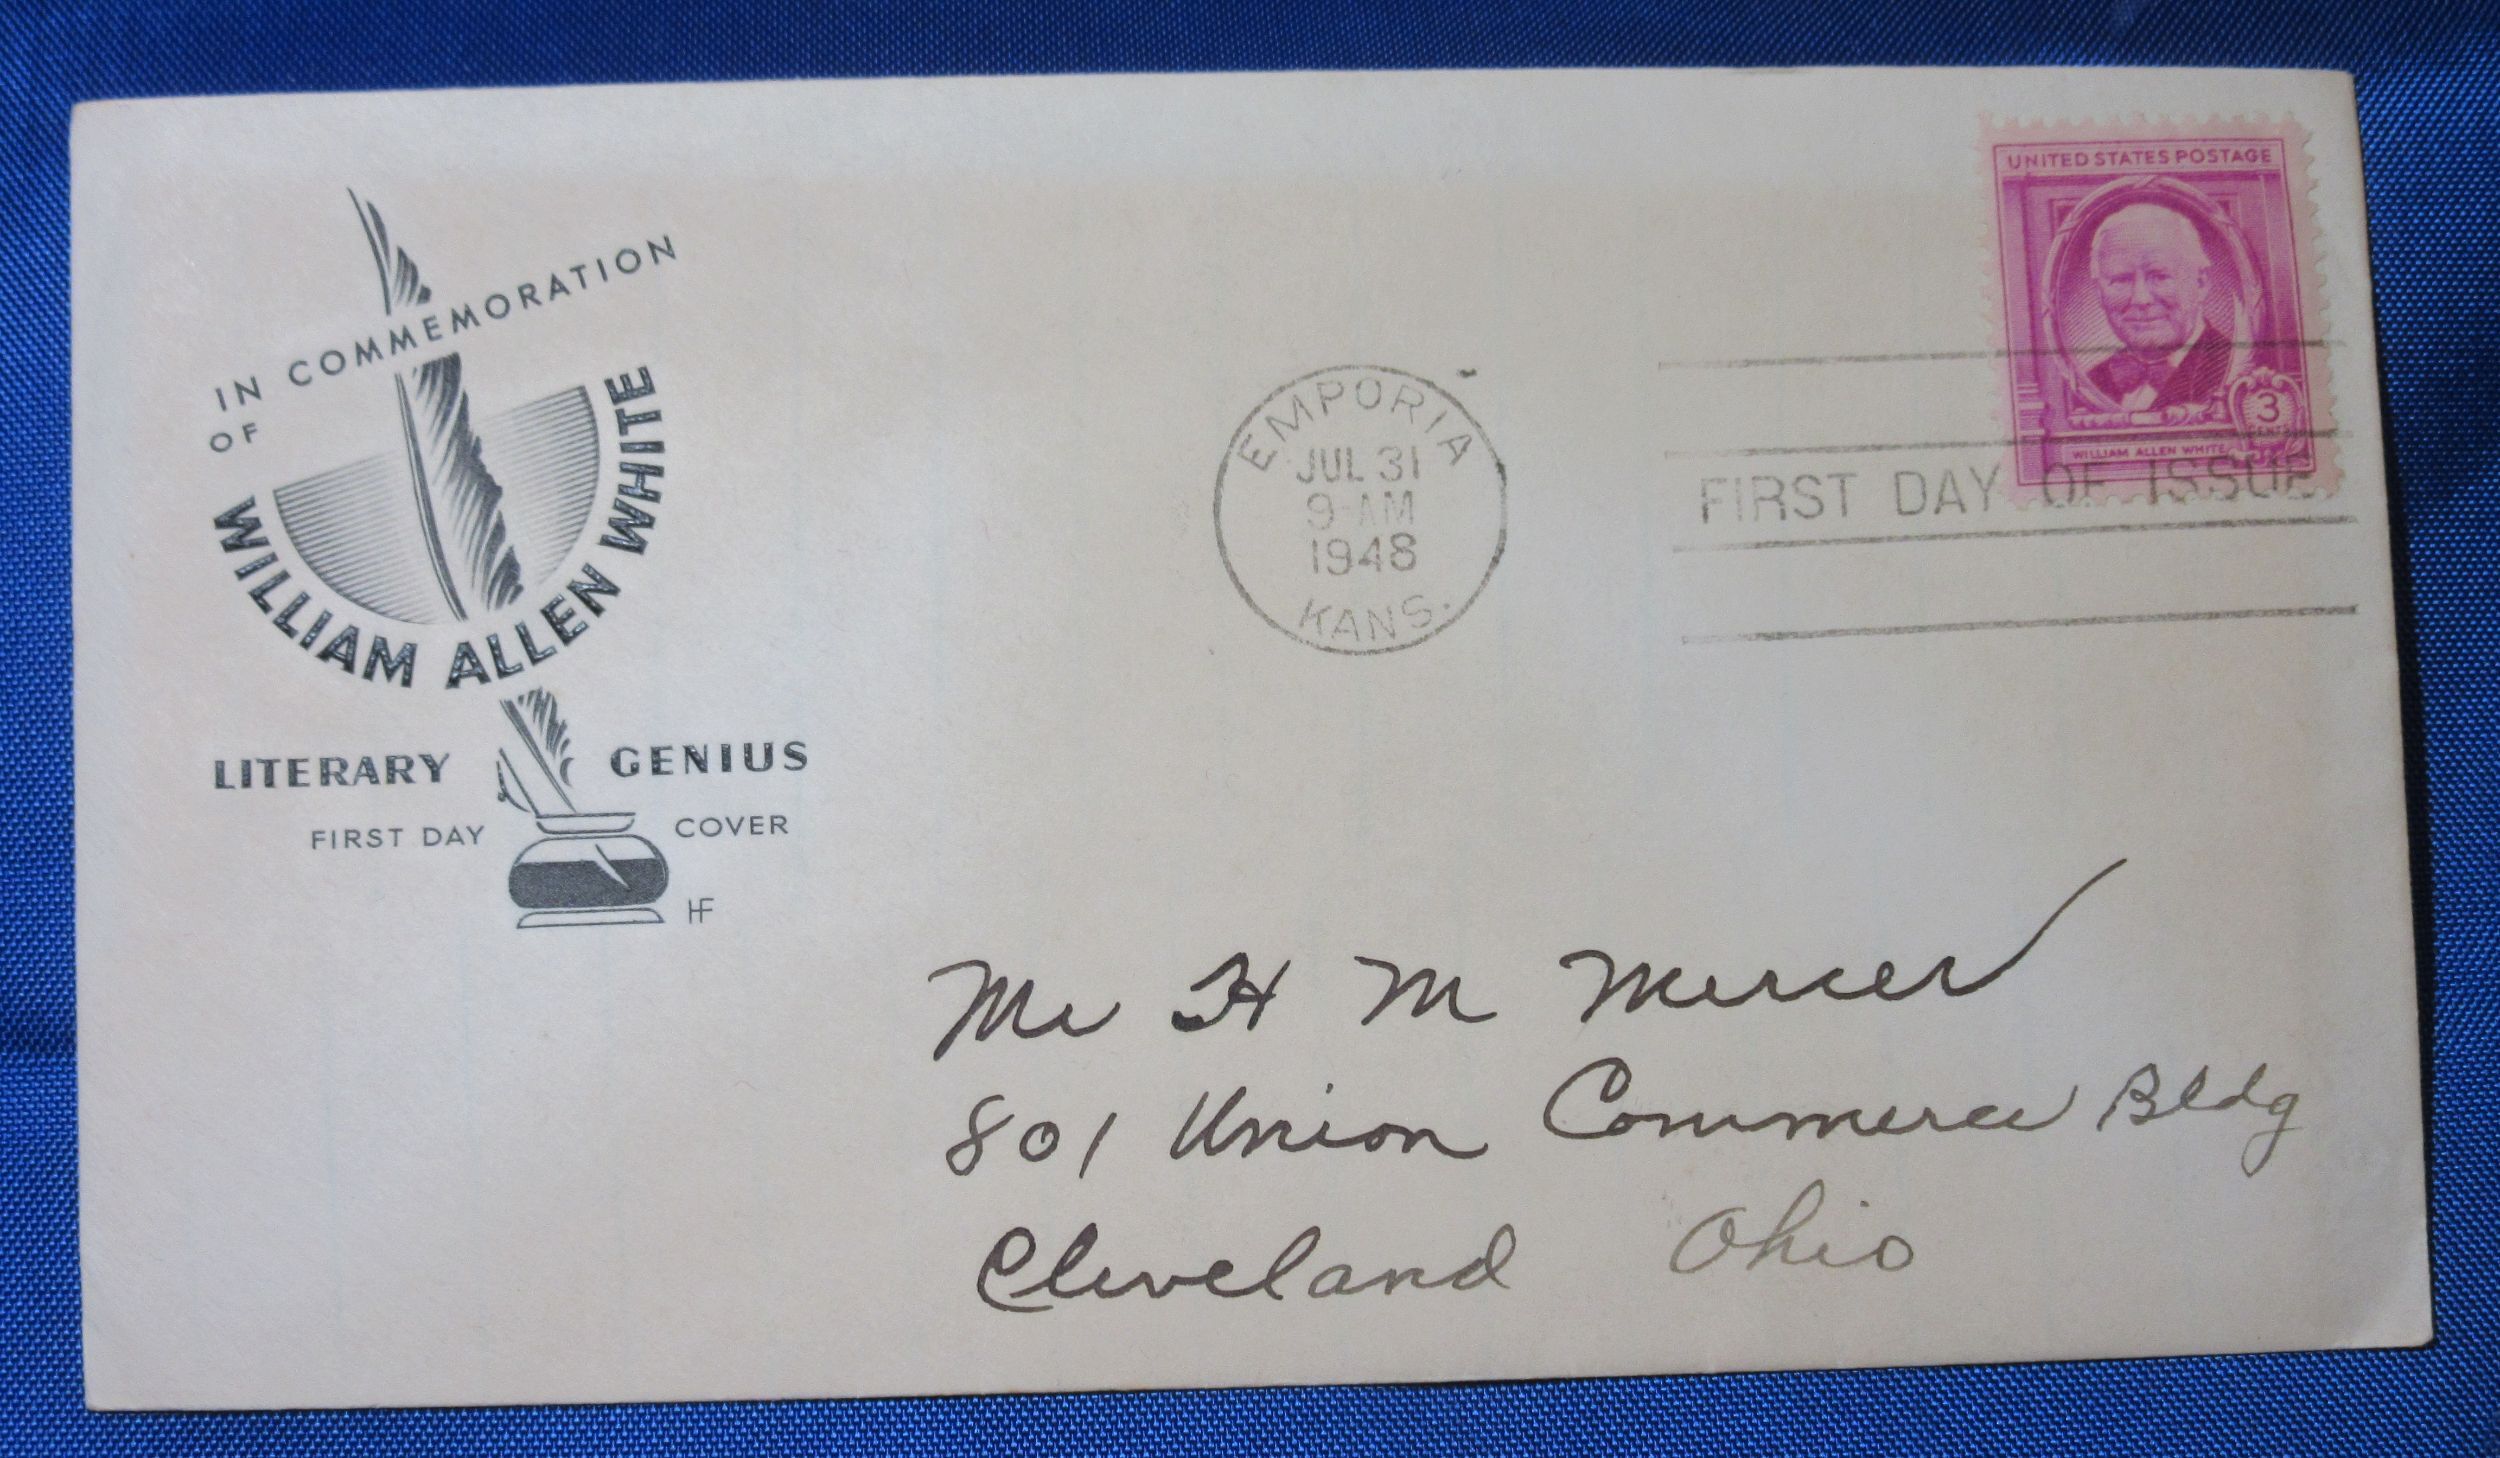 IN COMMEMORATION
OF
WILLIAM ALLEN WHITE
LITERARY GENIUS
FIRST DAY COVER
HF
EMPORIA
JUL 31
9-AM
1948
KANS.
UNITED STATES POSTAGE
3
CENTS
WILLIAM ALLEN WHITE
FIRST DAY OF ISSUE
Mr H M Mercer
801 Union Commerce Bldg
Cleveland Ohio